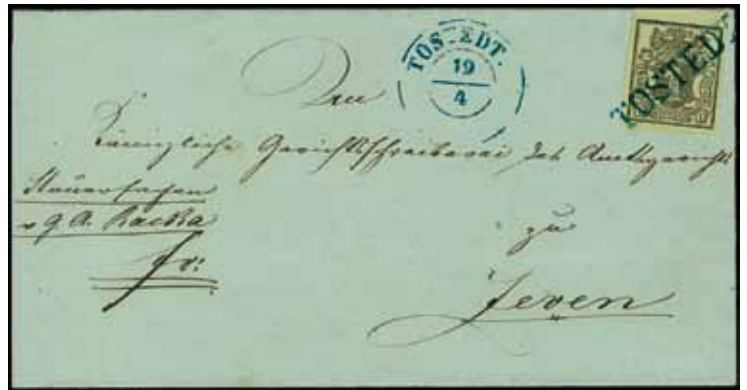 TOSTEDT.
19
4
TOSTEDT
Der
Königliche Gerichtsschreiberei des Amtsgerichts
Steuersachen
fr:
zu
Zeven